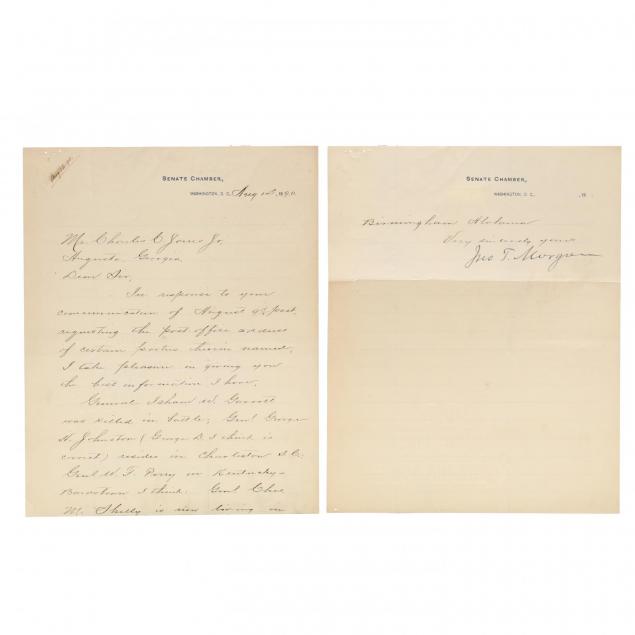 SENATE CHAMBER,
WASHINGTON, D. C., Aug 1890
Mr. Charles C Jones Jr.
Augusta Georgia
Dear Sir,
In response to your
communication of August 9th past.
requesting the post office address
of certain parties therein named,
I take pleasure in giving you
the best information I have.
General Isham W. Garrott
was killed in battle; Genl George
H. Johnston (George D. I think is
correct) resides in Charleston S.C.
Genl W. F. Perry in Kentucky -
I think. Genl Chas
M. Shelly is now living in
SENATE CHAMBER,
WASHINGTON, D. C., , 18
Birmingham Alabama
Very sincerely yours
Jno T. Morgan